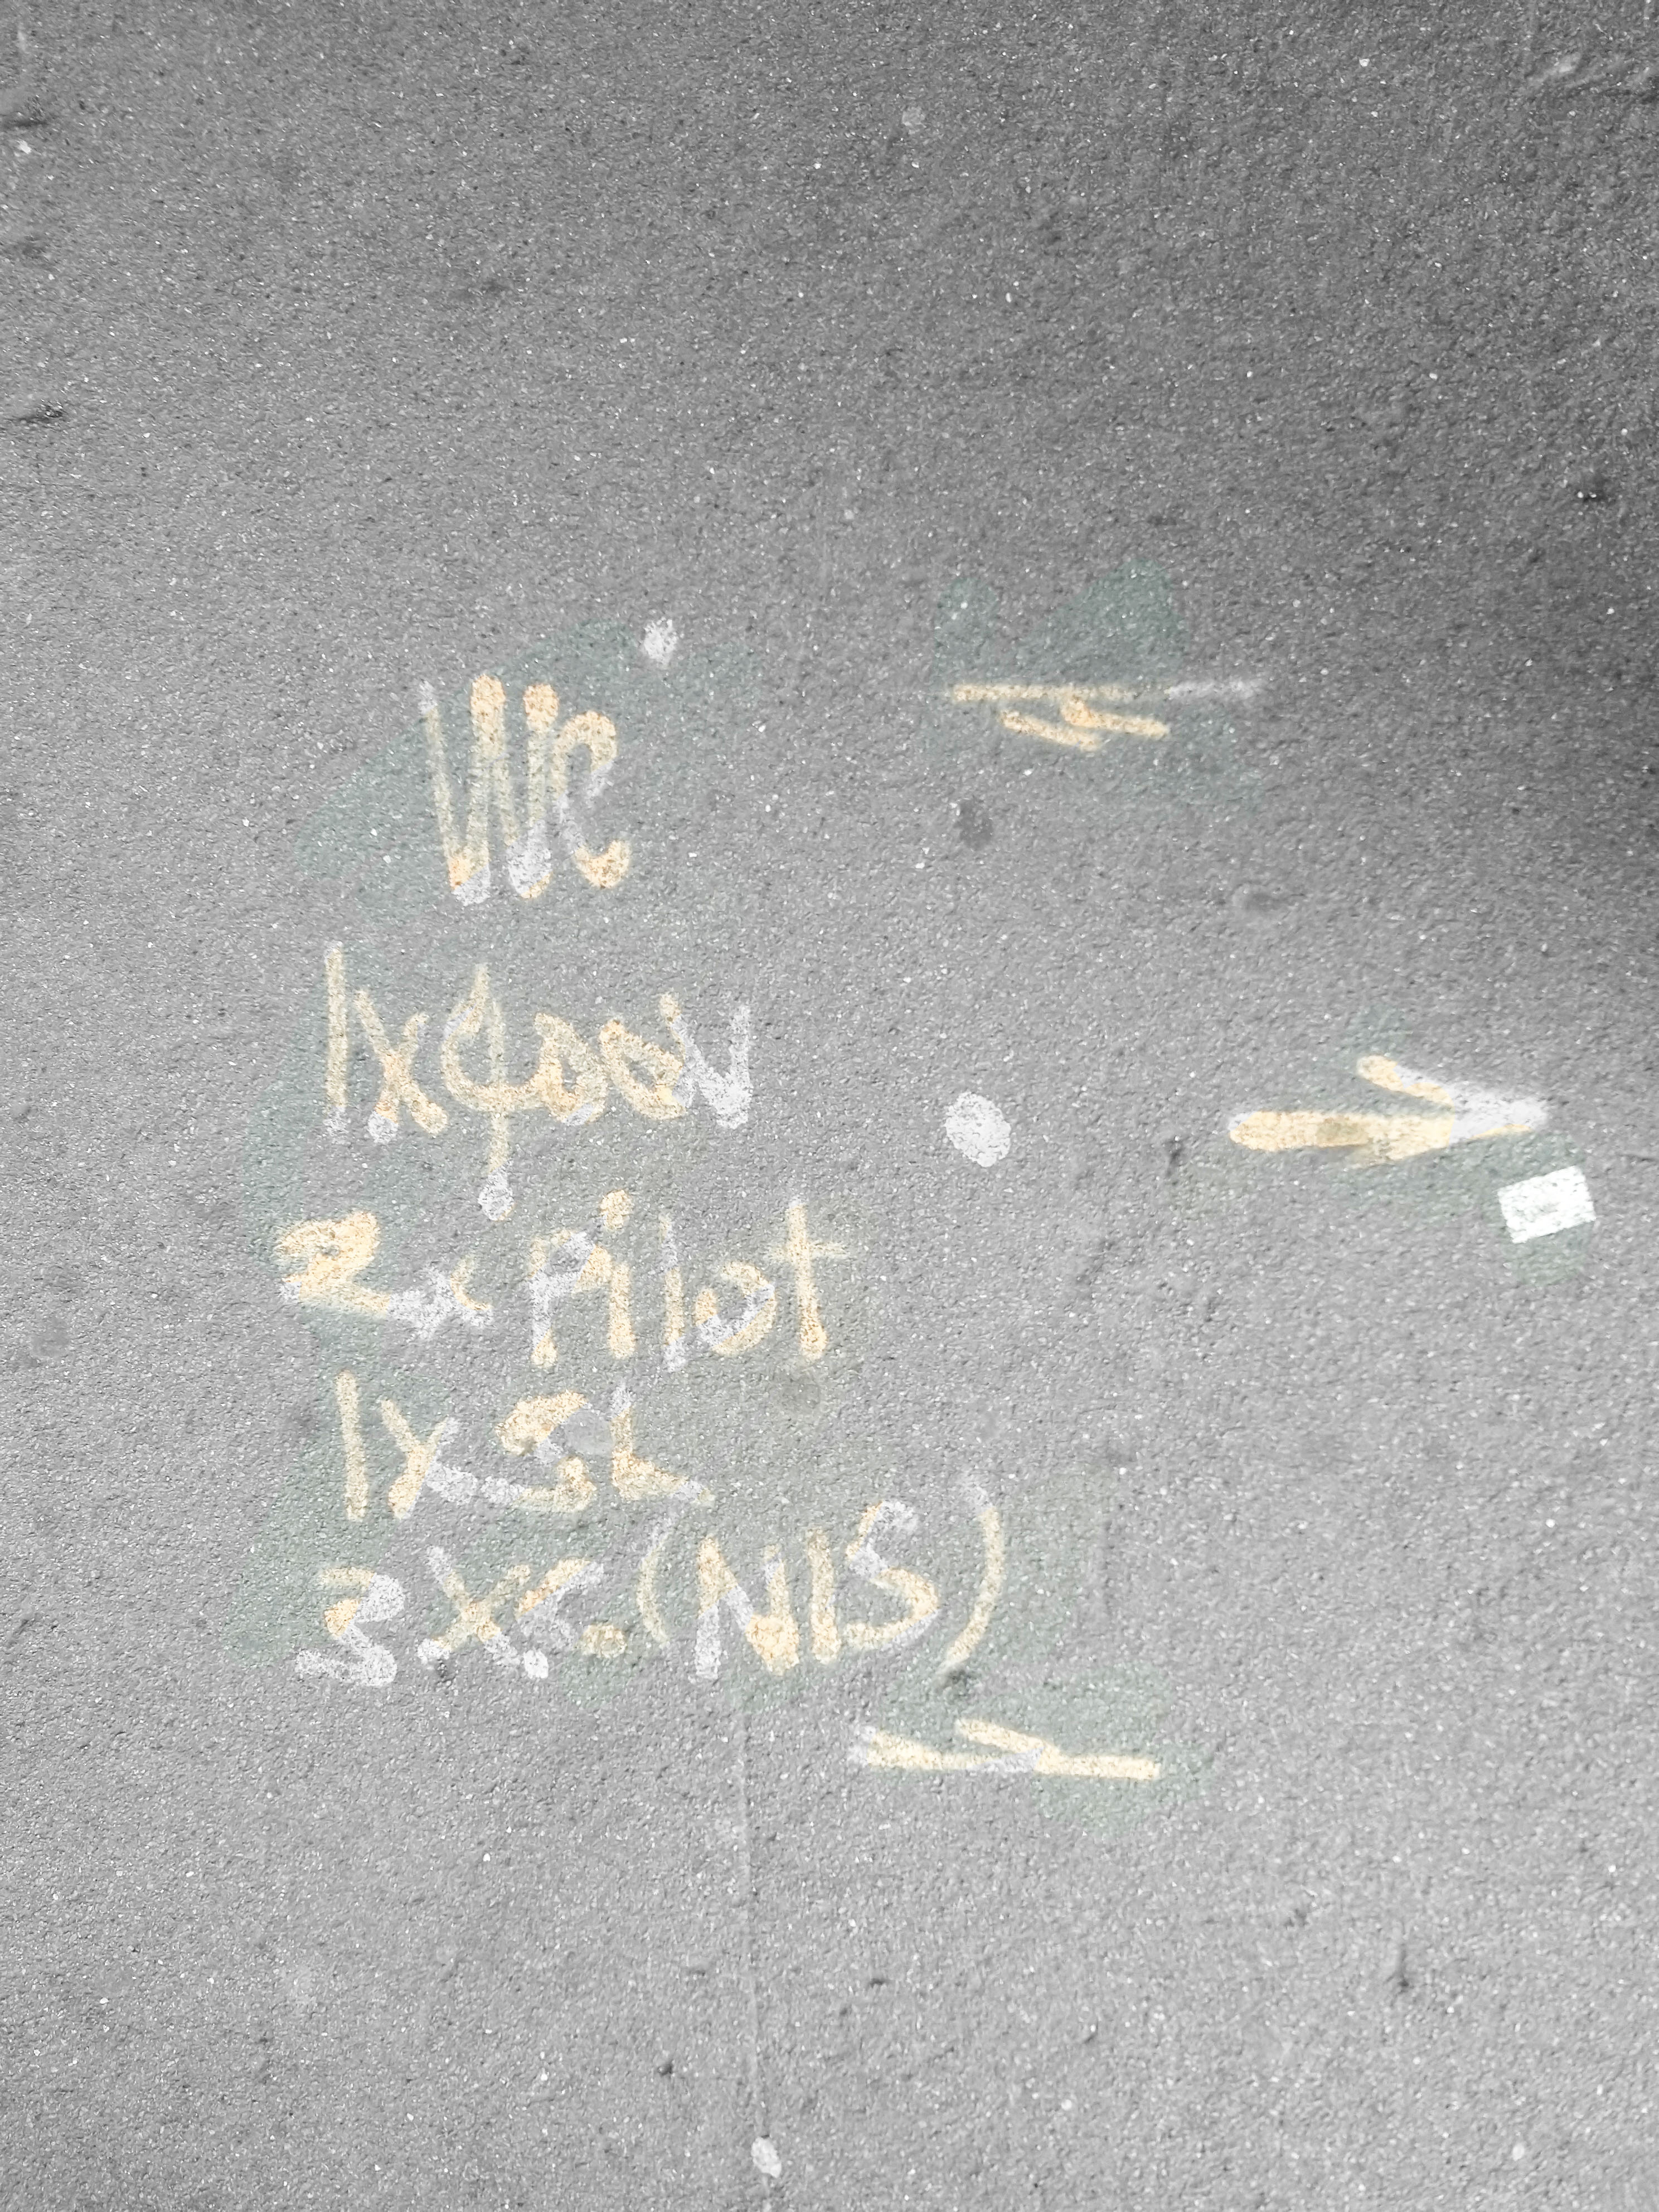 WC
1x400V
2x Pilot
1x SL
3xc.(NIS)